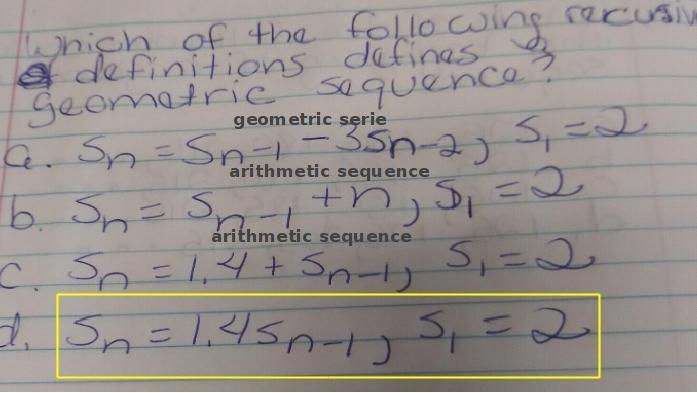 which of the following recursiv
definitions defines a
geometric sequence?
geometric serie
a. Sn = Sn-1 - 3Sn-2, S1 = 2
arithmetic sequence
b. Sn = Sn-1 + n, S1 = 2
arithmetic sequence
c. Sn = 1.4 + Sn-1, S1 = 2
d. Sn = 1.4Sn-1, S1 = 2